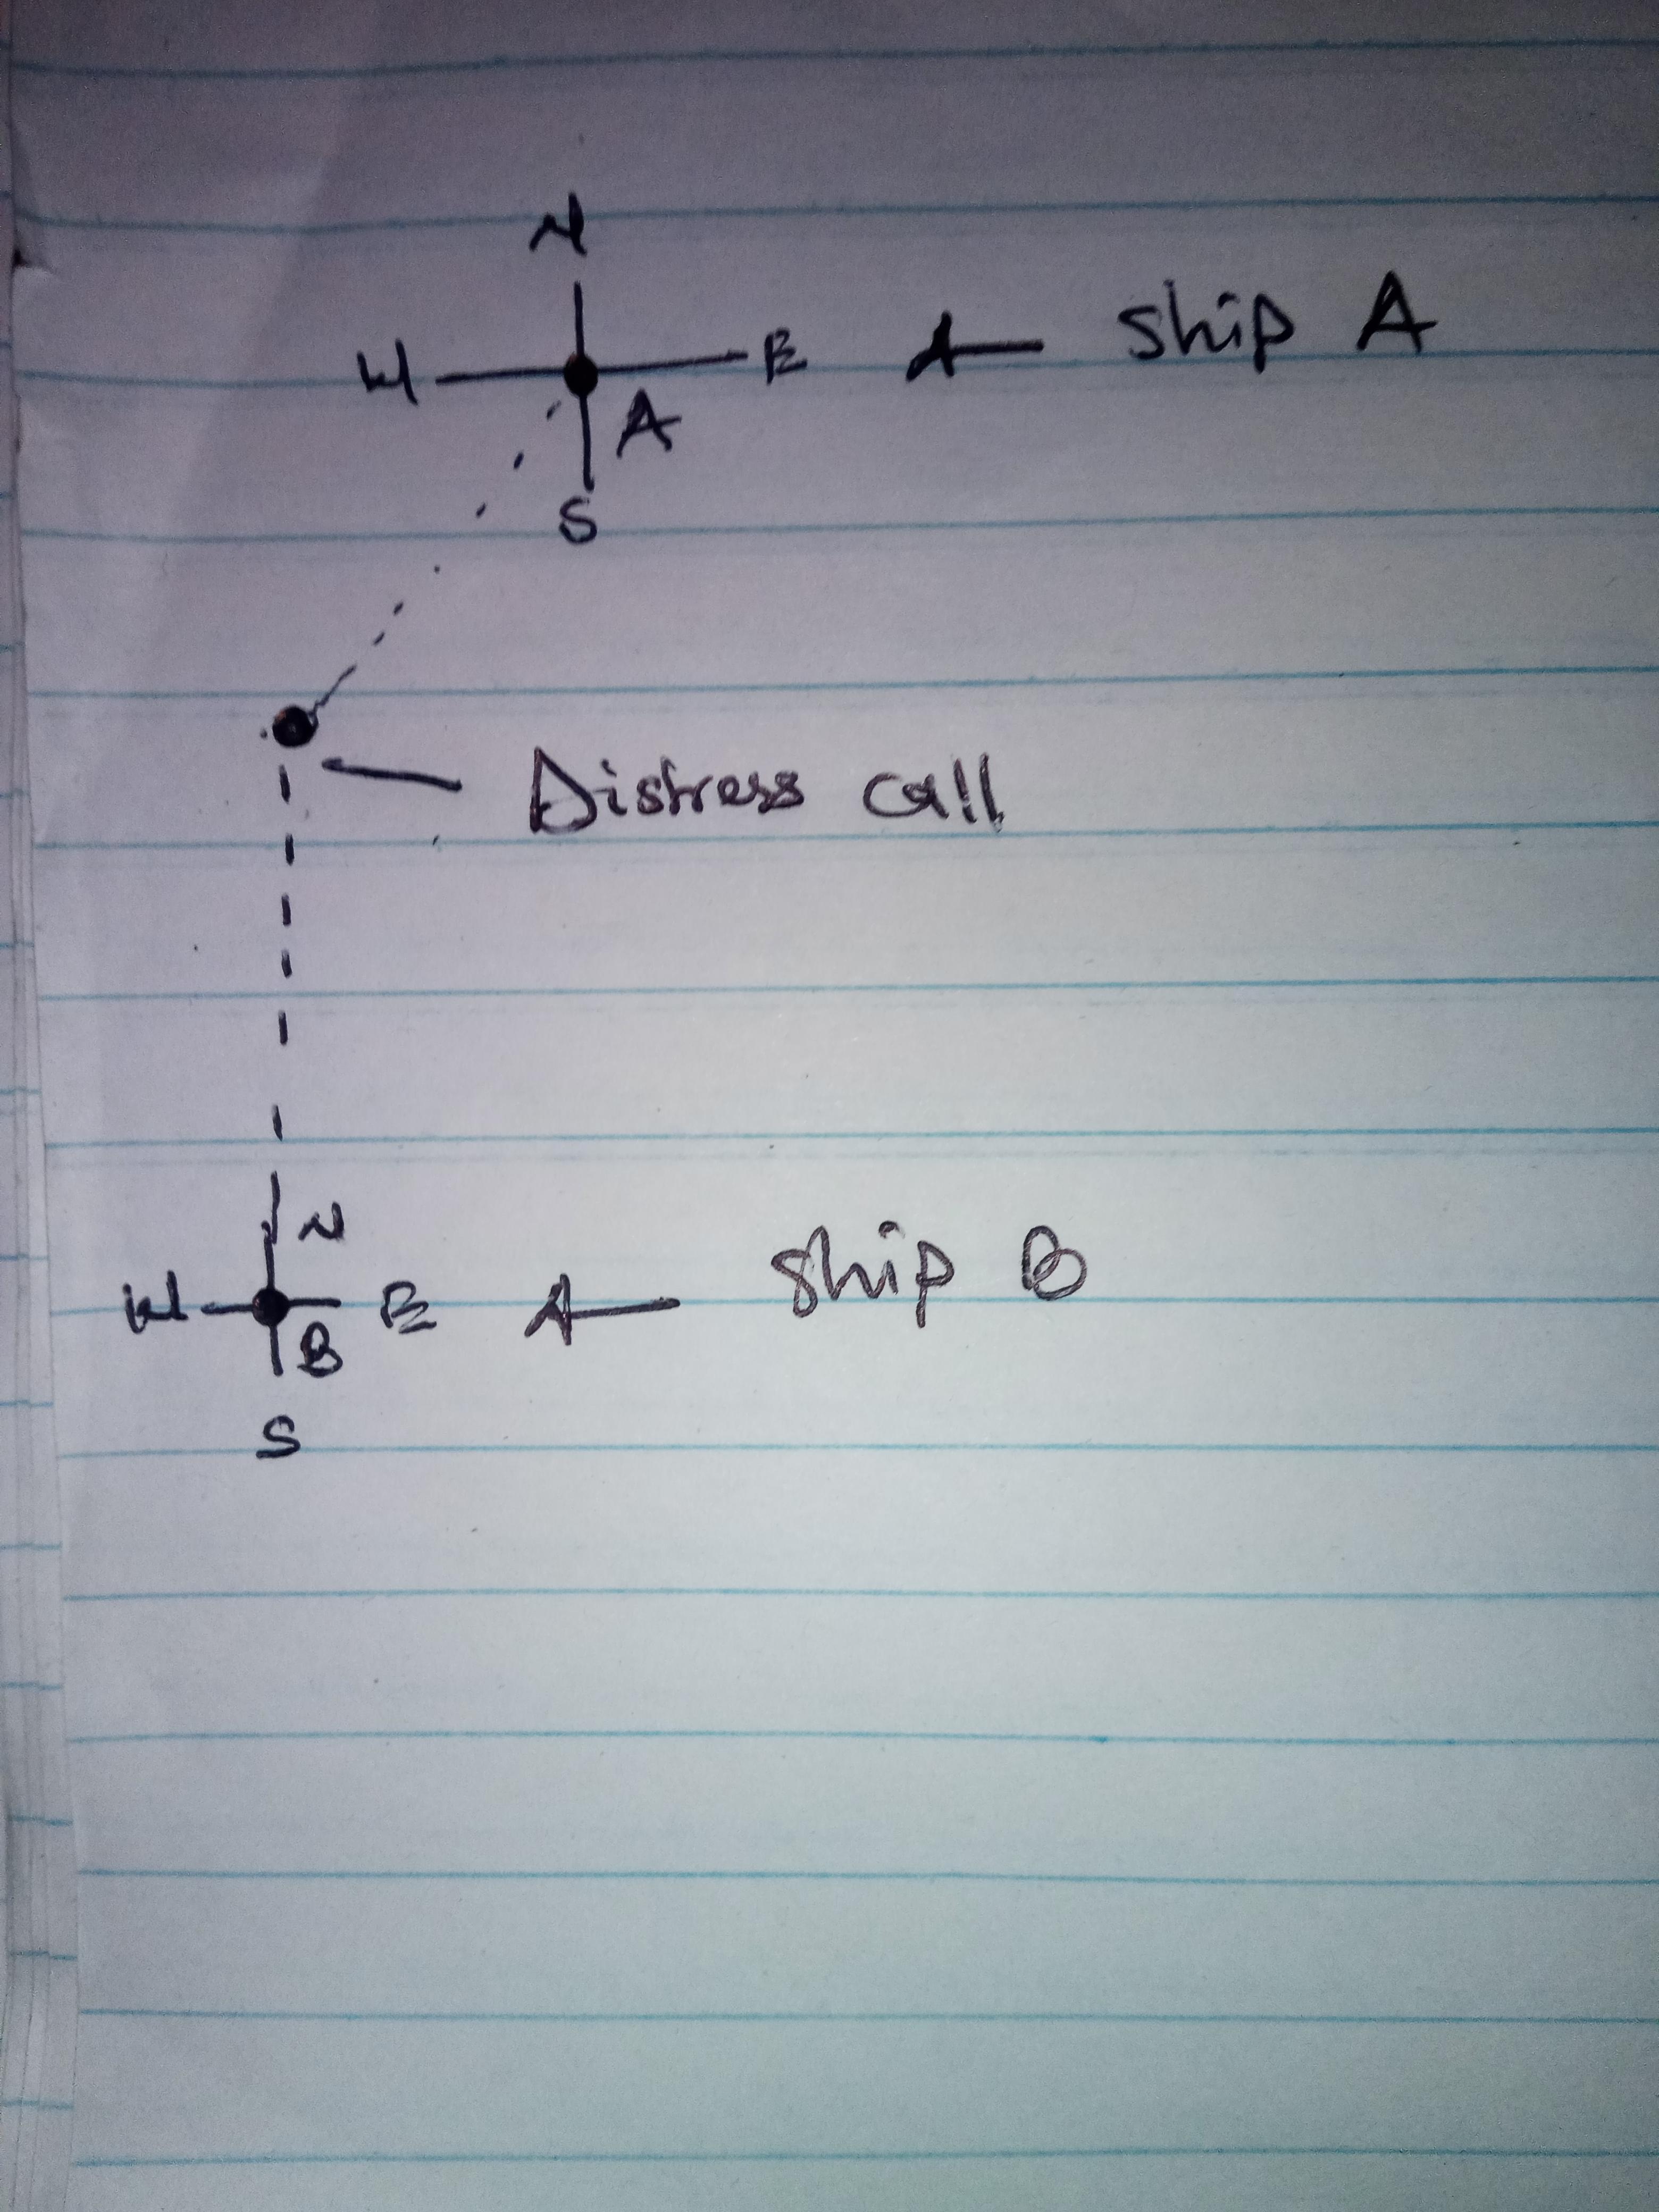 N
W E ← Ship A
A
S
Distress call
N
W E ← Ship B
B
S